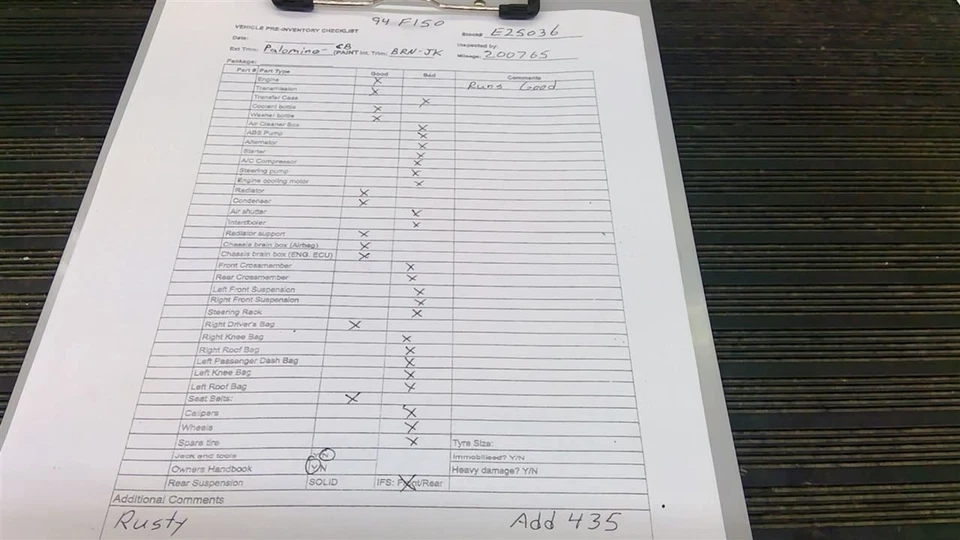 94 F150
VEHICLE PRE-INVENTORY CHECKLIST
Stock# E25036
Date:
Inspected by:
Ext Trim: Palomino- CB (PAINT Int. Trim: BRN-JK
Mileage: 200765
Package:
Part # Part Type Good Bad Comments
Engine X Runs Good
Transmission X
Transfer Case X
Coolant bottle X
Washer bottle X
Air Cleaner Box X
ABS Pump X
Alternator X
Starter X
A/C Compressor X
Steering pump X
Engine cooling motor X
Radiator X
Condenser X
Air shutter X
Intercooler X
Radiator support X
Chassis brain box (Airbag) X
Chassis brain box (ENG. ECU) X
Front Crossmember X
Rear Crossmember X
Left Front Suspension X
Right Front Suspension X
Steering Rack X
Right Driver's Bag X
Right Knee Bag X
Right Roof Bag X
Left Passenger Dash Bag X
Left Knee Bag X
Left Roof Bag X
Seat Belts: X
Calipers X
Wheels X
Spare tire X Tyre Size:
Jack and tools Y/N Immobilised? Y/N
Owners Handbook Y/N Heavy damage? Y/N
Rear Suspension SOLID IFS: Front/Rear
Additional Comments
Rusty Add 435